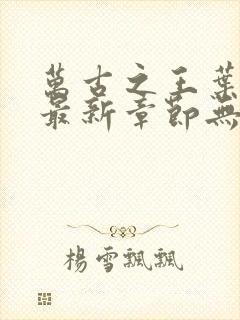 萬古之王葉
最新章節無
楊雪飄飄